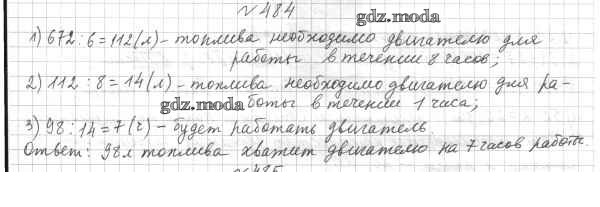 №484
gdz.moda
1) 672:6=112(л)-топлива необходимо двигателю для
работы в течении 8 часов;
2) 112:8=14(л)-топлива необходимо двигателю для ра-
gdz.moda
боты в течении 1 часа;
3) 98:14=7(ч)-будет работать двигатель.
Ответ: 98л топлива хватит двигателю на 7 часов работы.
№485
gdz.moda